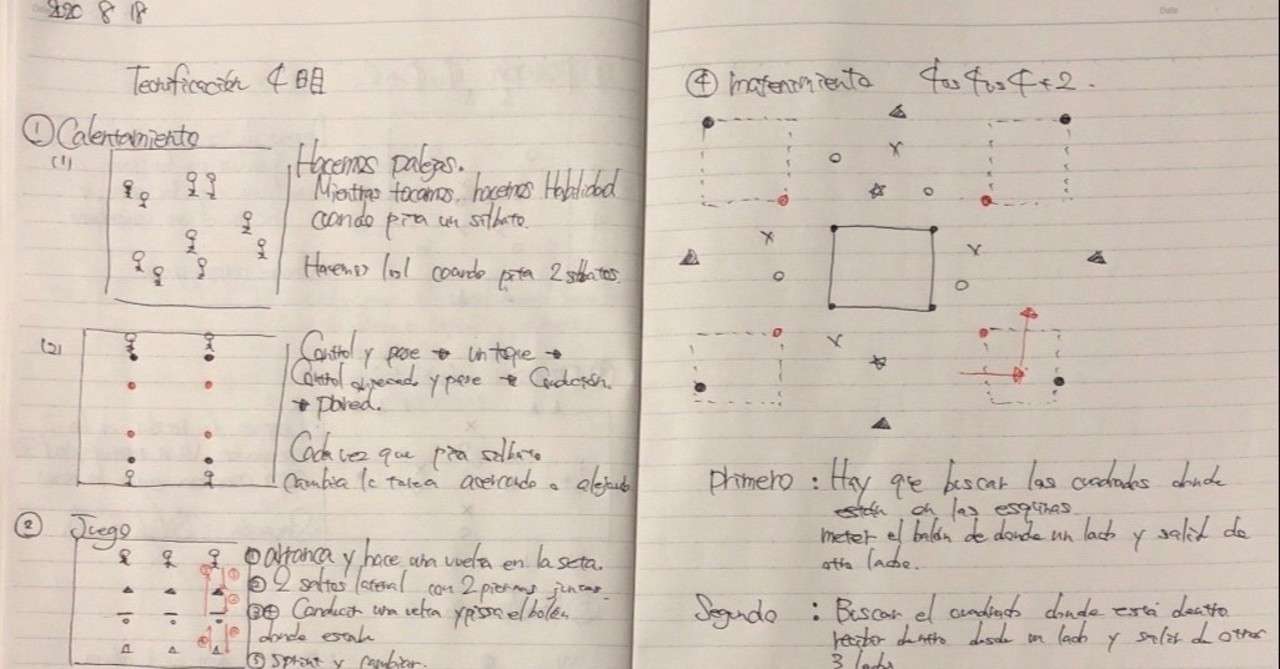 2020 8 18
Tecnificación 4回目
① Calentamiento
(1)
Hacemos parejas.
Mientras tocamos, hacemos Habilidad
cuando pita un silbato.
Hacemos 1v1 cuando pita 2 silbatos.
(2)
Control y pase → un toque →
Control y pase → Conducción.
→ pared.
Cada vez que pita silbato
cambia la tarea acercado o alejado
② Juego
① arranca y hace una vuelta en la seta.
② 2 saltos lateral con 2 piernas juntas.
③④ Conducir una vuelta y pisa el balón
donde estaba
⑤ Sprint y cambiar.
④ mantenimiento 4vs4vs4+2.
Primero : Hay que buscar las cuadrados donde
están en las esquinas
meter el balón de donde un lado y salir de
otro lado.
Segundo : Buscar el cuadrado donde está dentro
recibir dentro desde un lado y salir de otros
3 lados